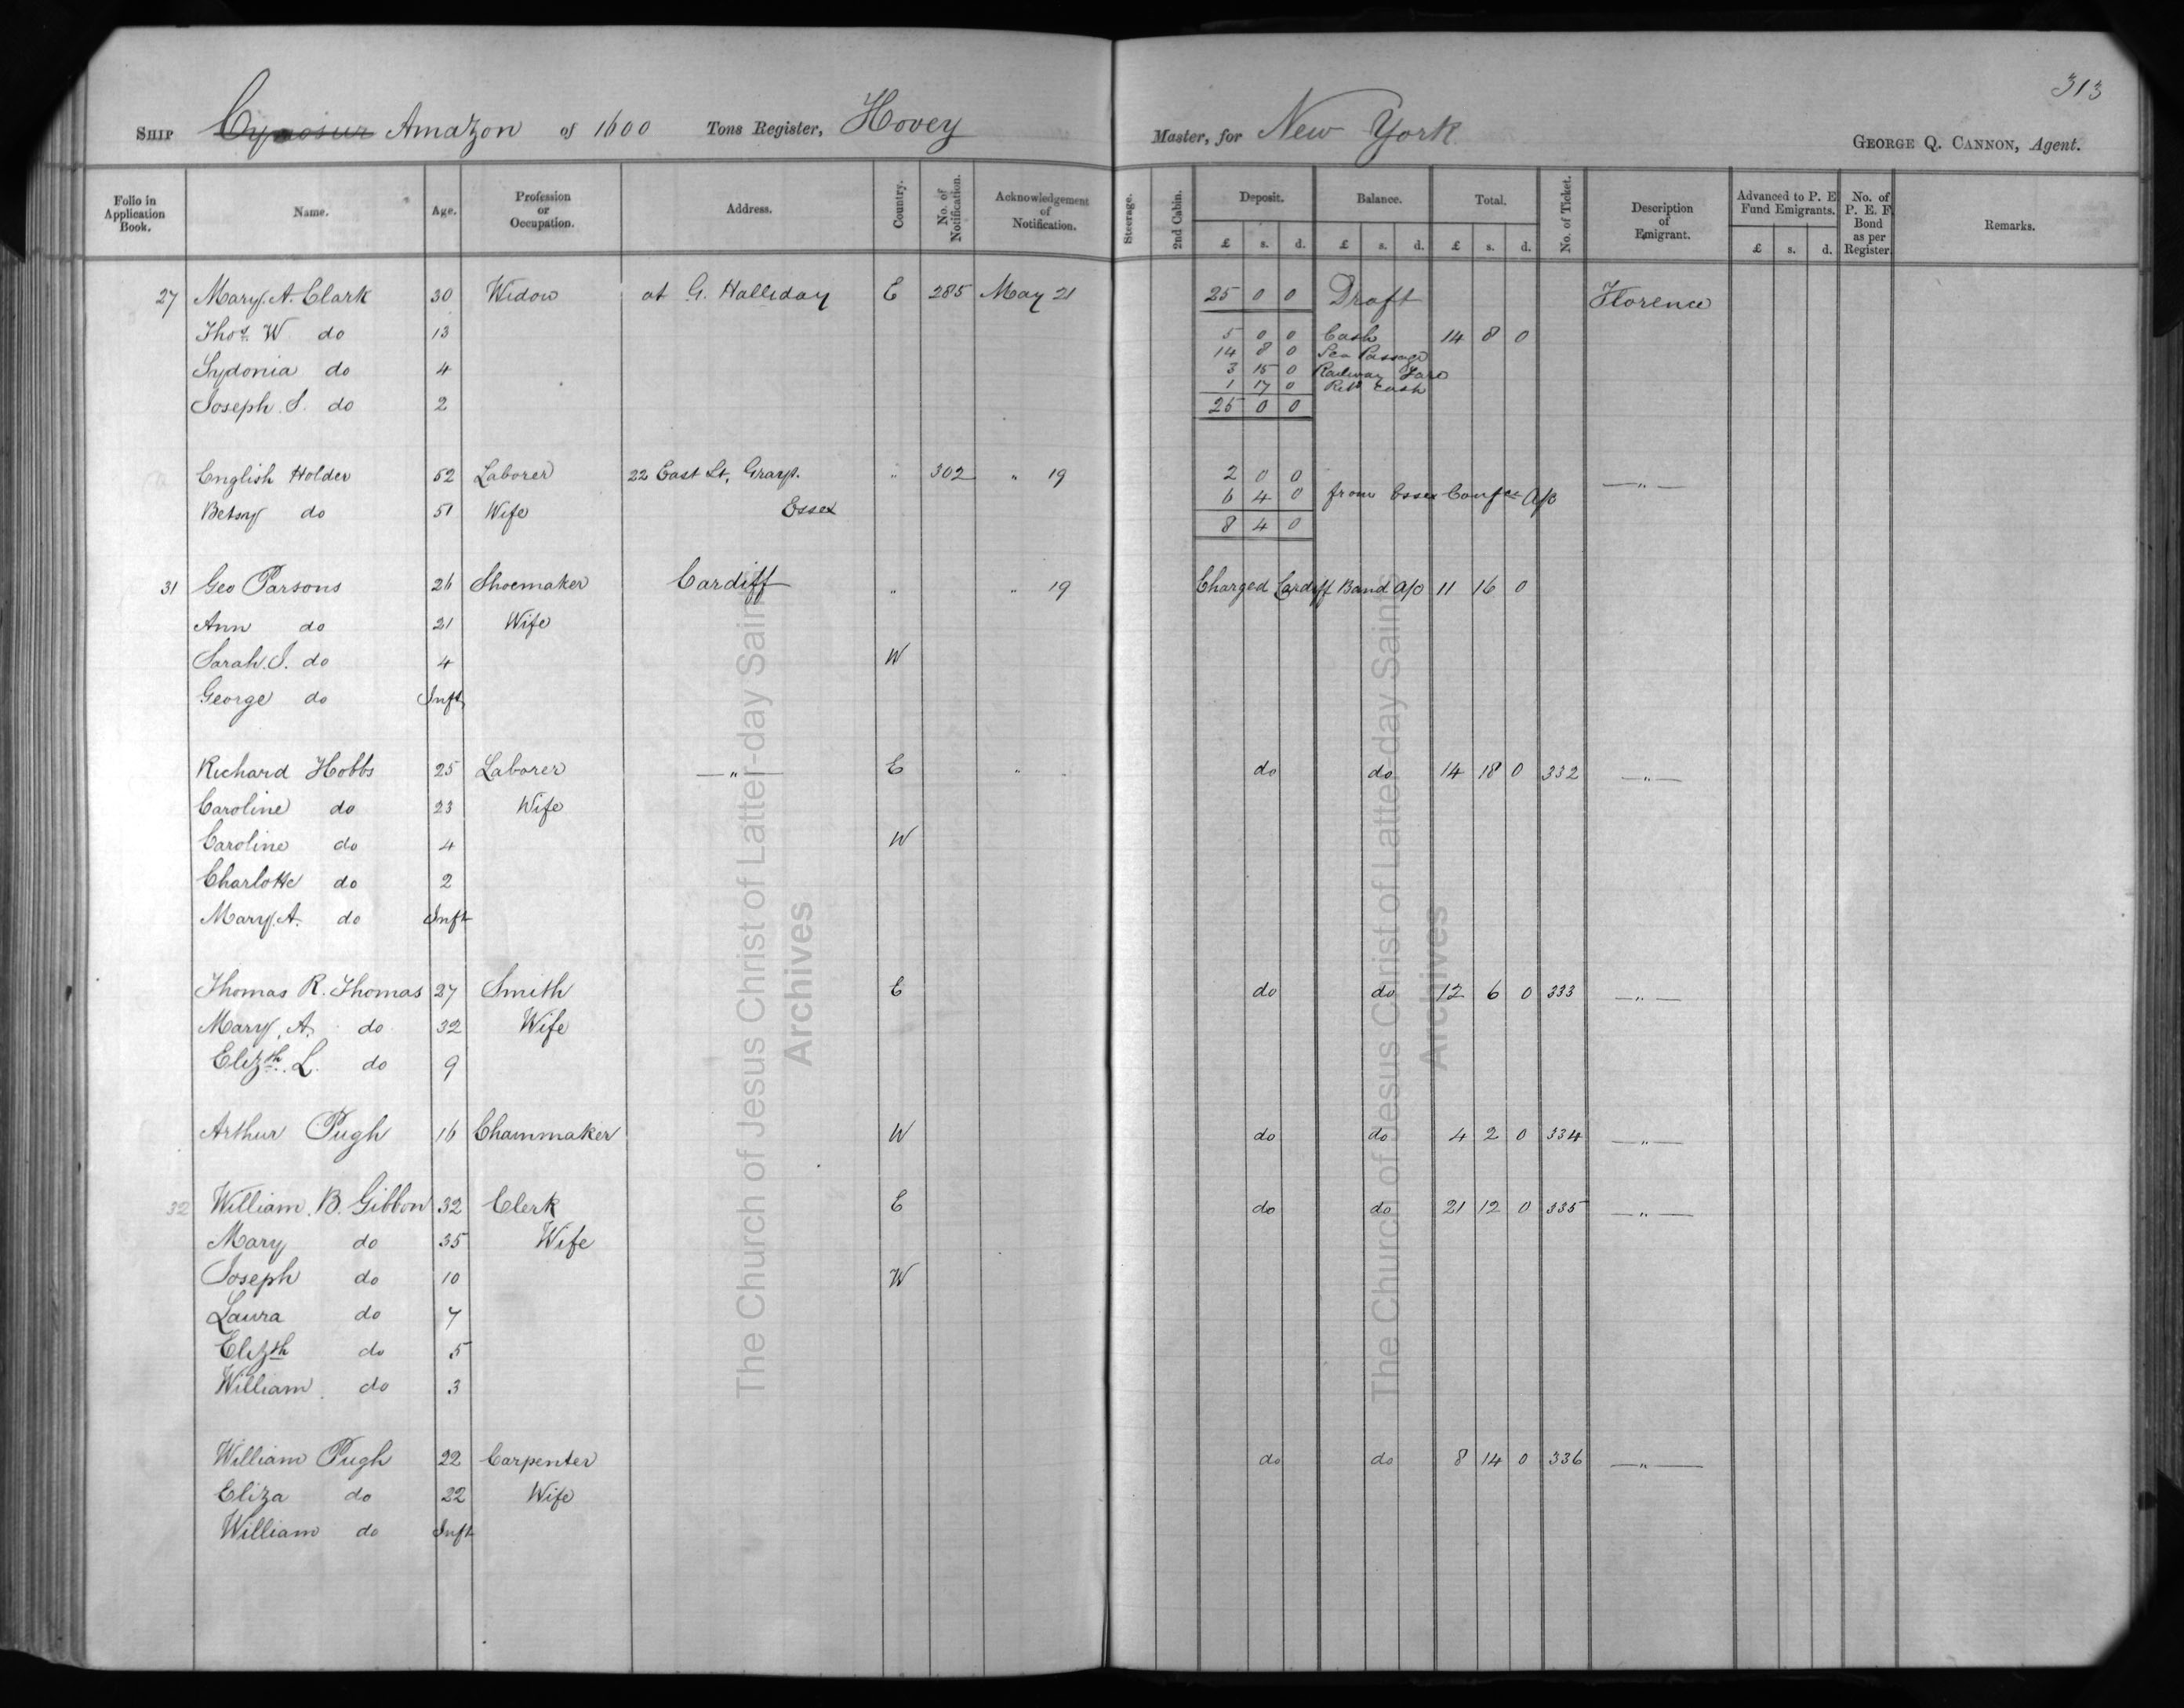 313
SHIP Cynosur Amazon of 1600 Tons Register, Hovey Master, for New York GEORGE Q. CANNON, Agent.
Folio in Application Book. Name. Age. Profession or Occupation. Address. Country. No. of Notification. Acknowledgement of Notification. Steerage. 2nd Cabin. Deposit. Balance. Total. No. of Ticket. Description of Emigrant. Advanced to P. E. Fund Emigrants. No. of P. E. F. Bond as per Register. Remarks.
£ s. d. £ s. d. £ s. d. £ s. d.
27 Mary A. Clark 30 Widow at G. Halliday E 285 May 21 25 0 0 Draft Florence
Thos. W do 13 5 0 0 Cash 14 8 0
14 8 0 Sea Passage
Sydonia do 4 3 15 0 Railway Fare
1 17 0 Retd Cash
Joseph S. do 2 25 0 0
English Holder 52 Laborer 22 East St, Grays. " 302 " 19 2 0 0 —"—
6 4 0 from Essex Confce A/c
Betsy do 51 Wife Essex 8 4 0
31 Geo Parsons 26 Shoemaker Cardiff " " 19 Charged Cardiff Band A/c 11 16 0
Ann do 21 Wife
Sarah. J. do 4 W
George do Inft
Richard Hobbs 25 Laborer —"— E " do do 14 18 0 332 —"—
Caroline do 23 Wife
Caroline do 4 W
Charlotte do 2
Mary A. do Inft
Thomas R. Thomas 27 Smith E do do 12 6 0 333 —"—
Mary A. do 32 Wife
Elizth. L. do 9
Arthur Pugh 16 Chainmaker W do do 4 2 0 334 —"—
32 William. B. Gibbon 32 Clerk E do do 21 12 0 335 —"—
Mary do 35 Wife
Joseph do 10 W
Laura do 7
Elizth do 5
William do 3
William Pugh 22 Carpenter do do 8 14 0 336 —"—
Eliza do 22 Wife
William do Inft
The Church of Jesus Christ of Latter-day Saints
Archives
The Church of Jesus Christ of Latter-day Saints
Archives